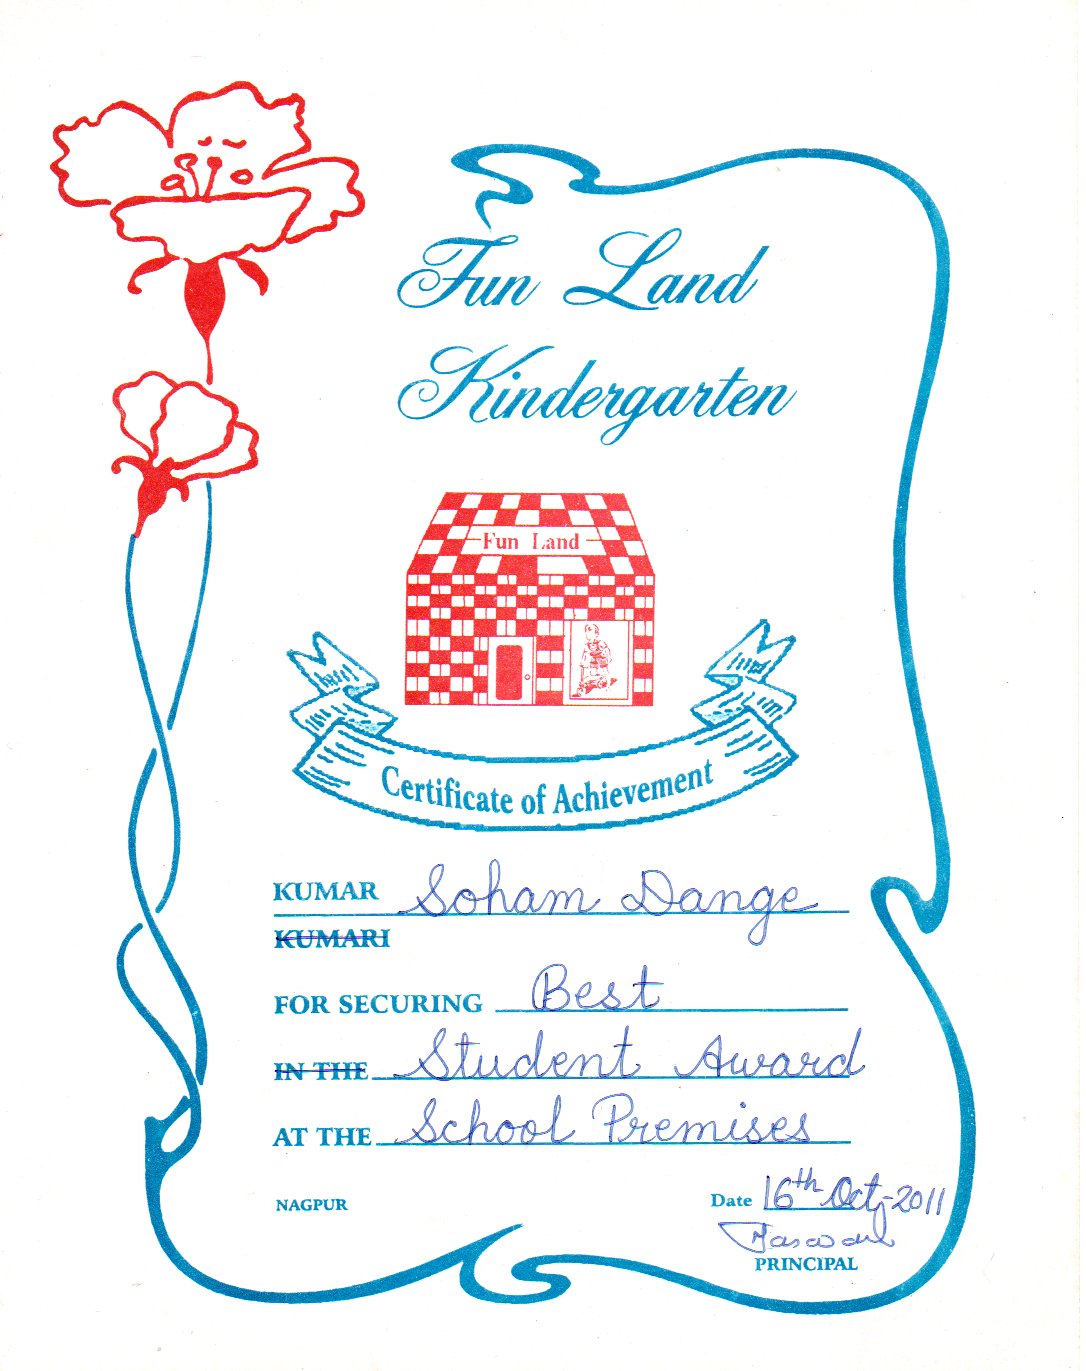 Fun Land
Kindergarten
Fun Land
Certificate of Achievement
KUMAR Soham Dange
KUMARI
FOR SECURING Best
IN THE Student Award
AT THE School Premises
NAGPUR
Date 16th Oct, 2011
PRINCIPAL